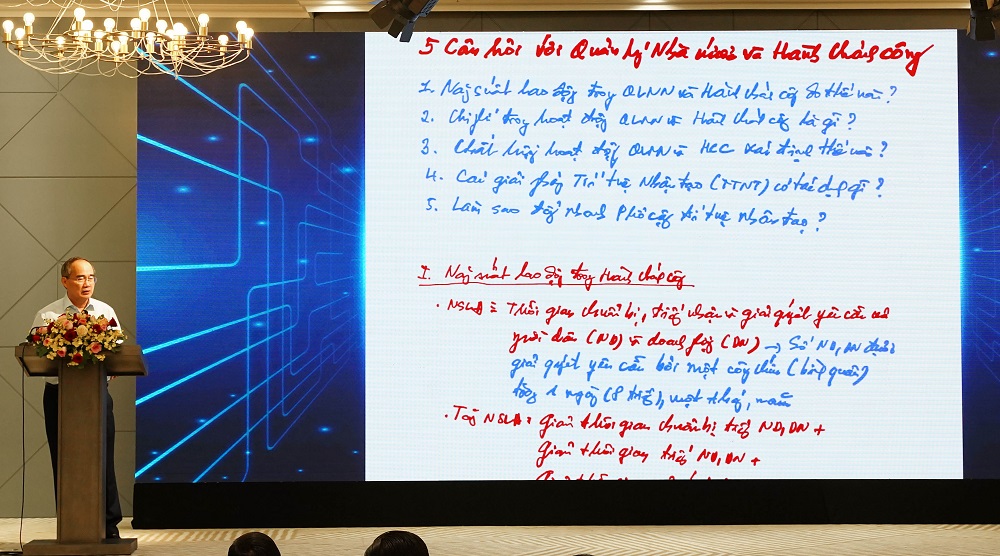 5 Câu hỏi với Quản lý Nhà nước và Hành chính công
1. Năng suất lao động trong QLNN và Hành chính công đo thế nào?
2. Chi phí trong hoạt động QLNN và Hành chính công là gì?
3. Chất lượng hoạt động QLNN và HCC xác định thế nào?
4. Các giải pháp Trí tuệ Nhân tạo (TTNT) có tác dụng gì?
5. Làm sao để nhanh phổ cập trí tuệ nhân tạo?
I. Năng suất lao động trong Hành chính công
• NSLĐ = Thời gian chuẩn bị, tiếp nhận và giải quyết yêu cầu của
người dân (ND) và doanh nghiệp (DN) → Số ND, DN được
giải quyết yêu cầu bởi một công chức (bình quân)
trong 1 ngày (8 tiếng), một tháng, năm
• Tăng NSLĐ = Giảm thời gian chuẩn bị tiếp ND, DN +
Giảm thời gian tiếp ND, DN +